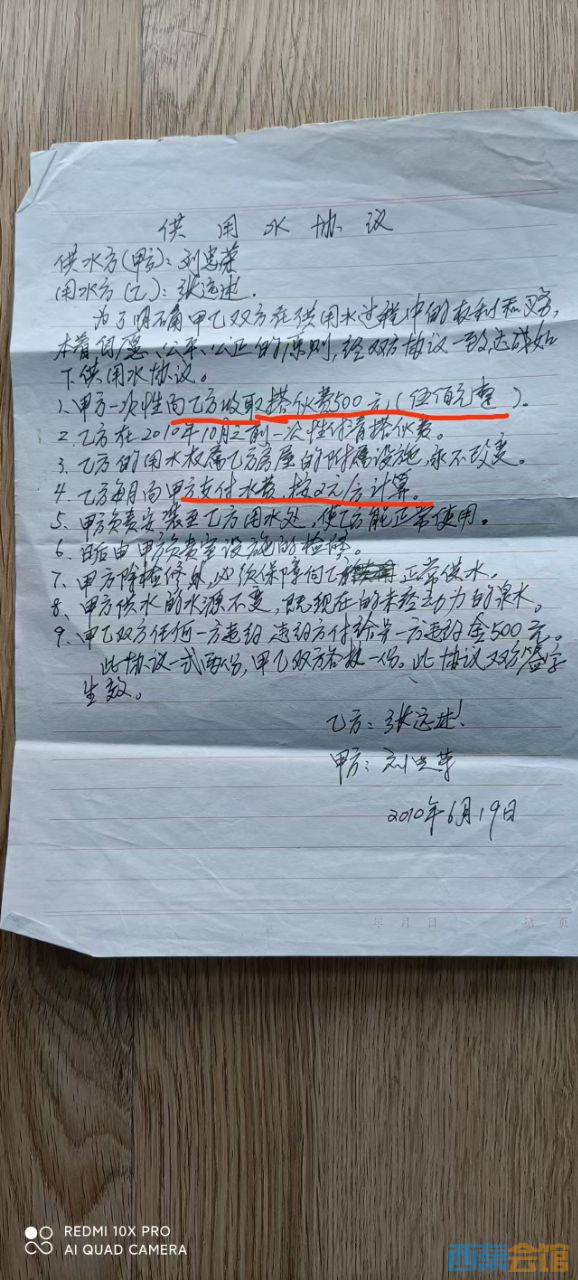 供用水协议
供水方(甲方):刘忠荣
用水方(乙):张远述.
为了明确甲乙双方在供用水过程中的权利和义务,
本着自愿、公平、公正的原则,经双方协议一致,达成如
下供用水协议。
1、甲方一次性向乙方收取搭伙费500元,(伍佰元整)。
2、乙方在2010年10月之前一次性付清搭伙费。
3、乙方的用水权属乙方房屋的附属设施,永不改变。
4、乙方每月向甲方支付水费,按2元/方计算。
5、甲方负责安装至乙方用水处,使乙方能正常使用。
6、日后由甲方负责室设施的检修。
7、甲方除检修外,必须保障向乙方正常供水。
8、甲方供水的水源不变,既现在的未经动力的泉水。
9、甲乙双方任何一方违约,违约方付给另一方违约金500元。
此协议一式两份,甲乙双方各执一份。此协议双方签字
生效。
乙方:张远述
甲方:刘忠荣
2010年6月19日
年 月 日 第 页
REDMI 10X PRO
AI QUAD CAMERA
西集会馆